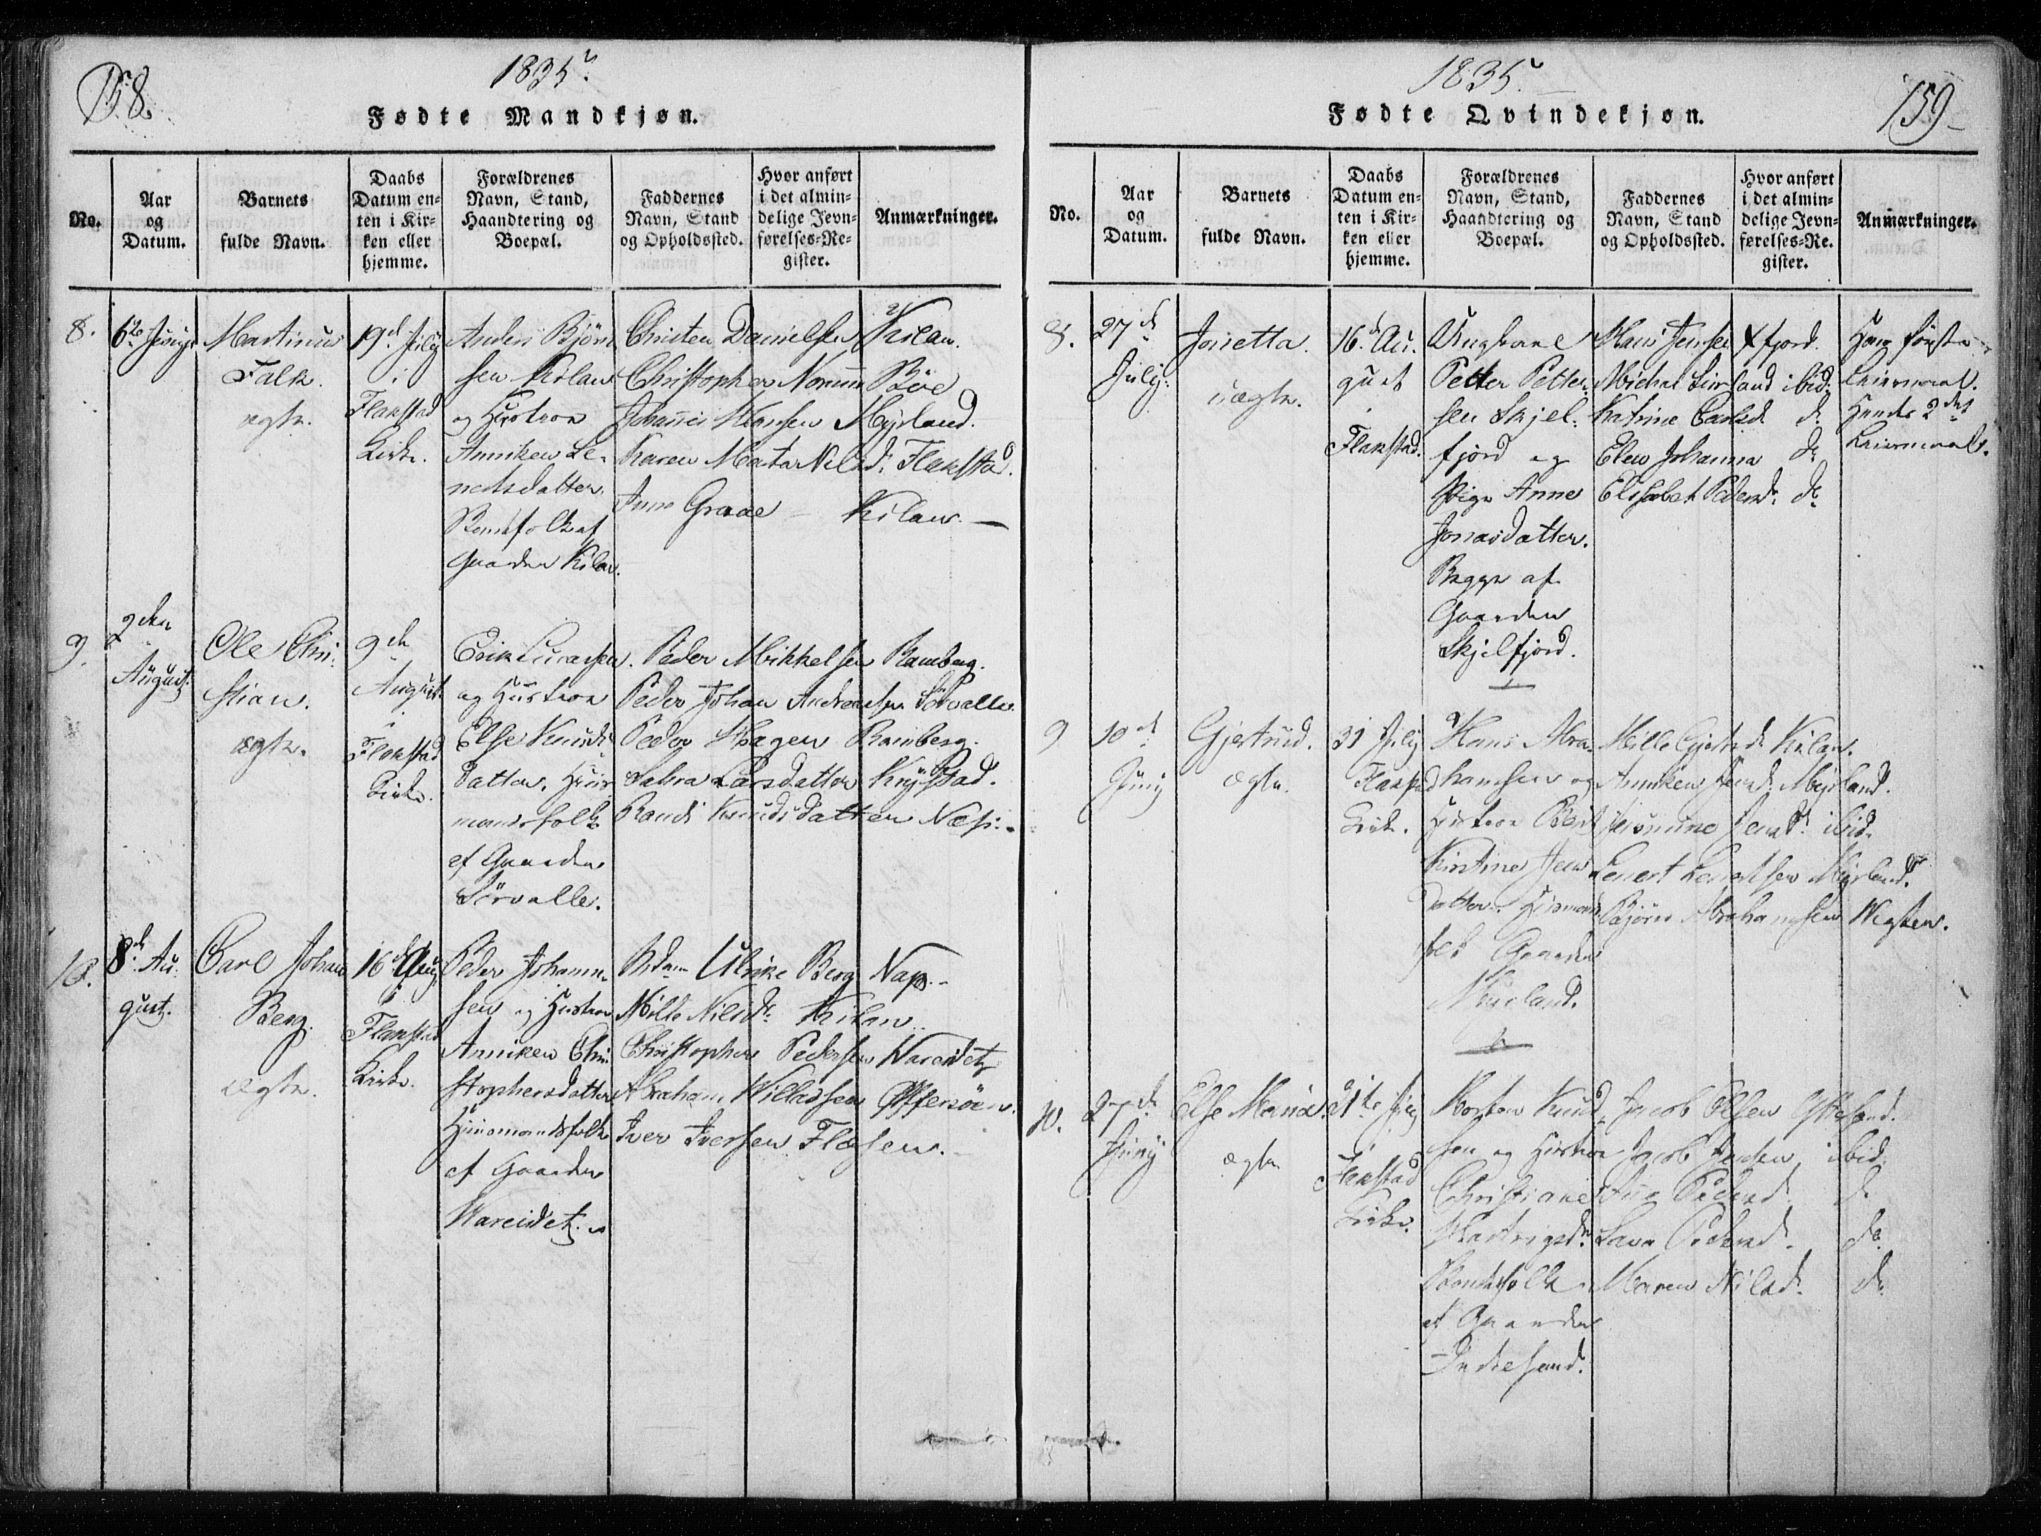 158.
1835.
Fødte Mandkjøn.
No.
Aar
og
Datum.
Barnets
fulde Navn.
Daabs
Datum en-
ten i Kir-
ken eller
hjemme.
Forældrenes
Navn, Stand,
Haandtering og
Boepæl.
Faddernes
Navn, Stand
og Opholdssted.
Hvor anført
i det almin-
delige Jevn-
førelses-Re-
gister.
Anmærkninger.
8.
6te Juny
Martinus
Falk.
ægte.
19de July
i
Flakstad
Kirke.
Anders Bjørn
sen Kilan
og Hustroe
Anniken Le-
nertsdatter
Bondefolk af
Gaarden Kilan.
Christen Danielsen Kilan.
Christopher Normann Böe
Johannes Hansen Myrland.
Karen Marta Nilsd. Flakstad.
Kilan.
9.
2den
August.
Ole Chri-
stian.
ægte.
9de
August
i
Flakstad
Kirke.
Erik Lucassen
og Hustroe
Else Knuds
datter, Huus
mandsfolk
af Gaarden
Sörvalle.
Peder Mikkelsen Ramberg.
Peder Johan Andreasen Sörvalle.
Peder Hagen Ramberg.
Larsdatter Krÿstad.
Randi Knudsdatter Næss.
10.
8de Au-
gust.
Carl Johan
Berg.
ægte.
16de Aug.
i
Flakstad
Kirke.
Peder Johann-
sen og Hustroe
Anniken Chri
stophersdatter
Huusmandsfolk
af Gaarden
Vareidet.
Ulrike Berg Nap.
Mille Nilsd. Kilan.
Christopher Pedersen Vareidet
Abraham Willadsen Offersöen.
Iver Iversen Flæsen.
1835.
159
Fødte Qvindekjøn.
No.
Aar
og
Datum.
Barnets
fulde Navn.
Daabs
Datum en-
ten i Kir-
ken eller
hjemme.
Forældrenes
Navn, Stand,
Haandtering og
Boepæl.
Faddernes
Navn, Stand
og Opholdssted.
Hvor anført
i det almin-
delige Jevn-
førelses-Re-
gister.
Anmærkninger.
8.
27de
July.
Jonetta.
uægte.
16de Au-
gust
i
Flakstad.
Ungkarl
Petter Petter-
sen Skjel-
fjord og
Pige Anne
Jonasdatter.
Begge af
Gaarden
Skjelfjord.
Hans Jensen
Michal ibid.
Katrine do
Elen Johanna do
Elisabet Pedersd. do
Hans første
Leiermaal.
Hendes 2det
Leiermaal.
9
10de
Juny
Gjertrud.
ægte.
31 July
Flakstad
Kirke.
Hans Abra-
hamsen og
Hustroe Berit
Kirstine Jens
datter. Huusmands
folk Gaarden
Myrland.
Mille Kilan.
Anniken Myrland.
ibid.
Lenert Lenertsen Myrland.
Bjørn Abrahamsen Vigten.
10.
27de
Juny
Else Maria
ægte
i
Flakstad
Kirke.
Morten Knud
sen og Hustroe
Christiane
Hartvigsd.
Bondefolk
af Gaarden
Indresand.
Jacob Olsen
Jacob Jensen ibid.
Pedersd. do
Pedersd. do
Maren Nilsd. do